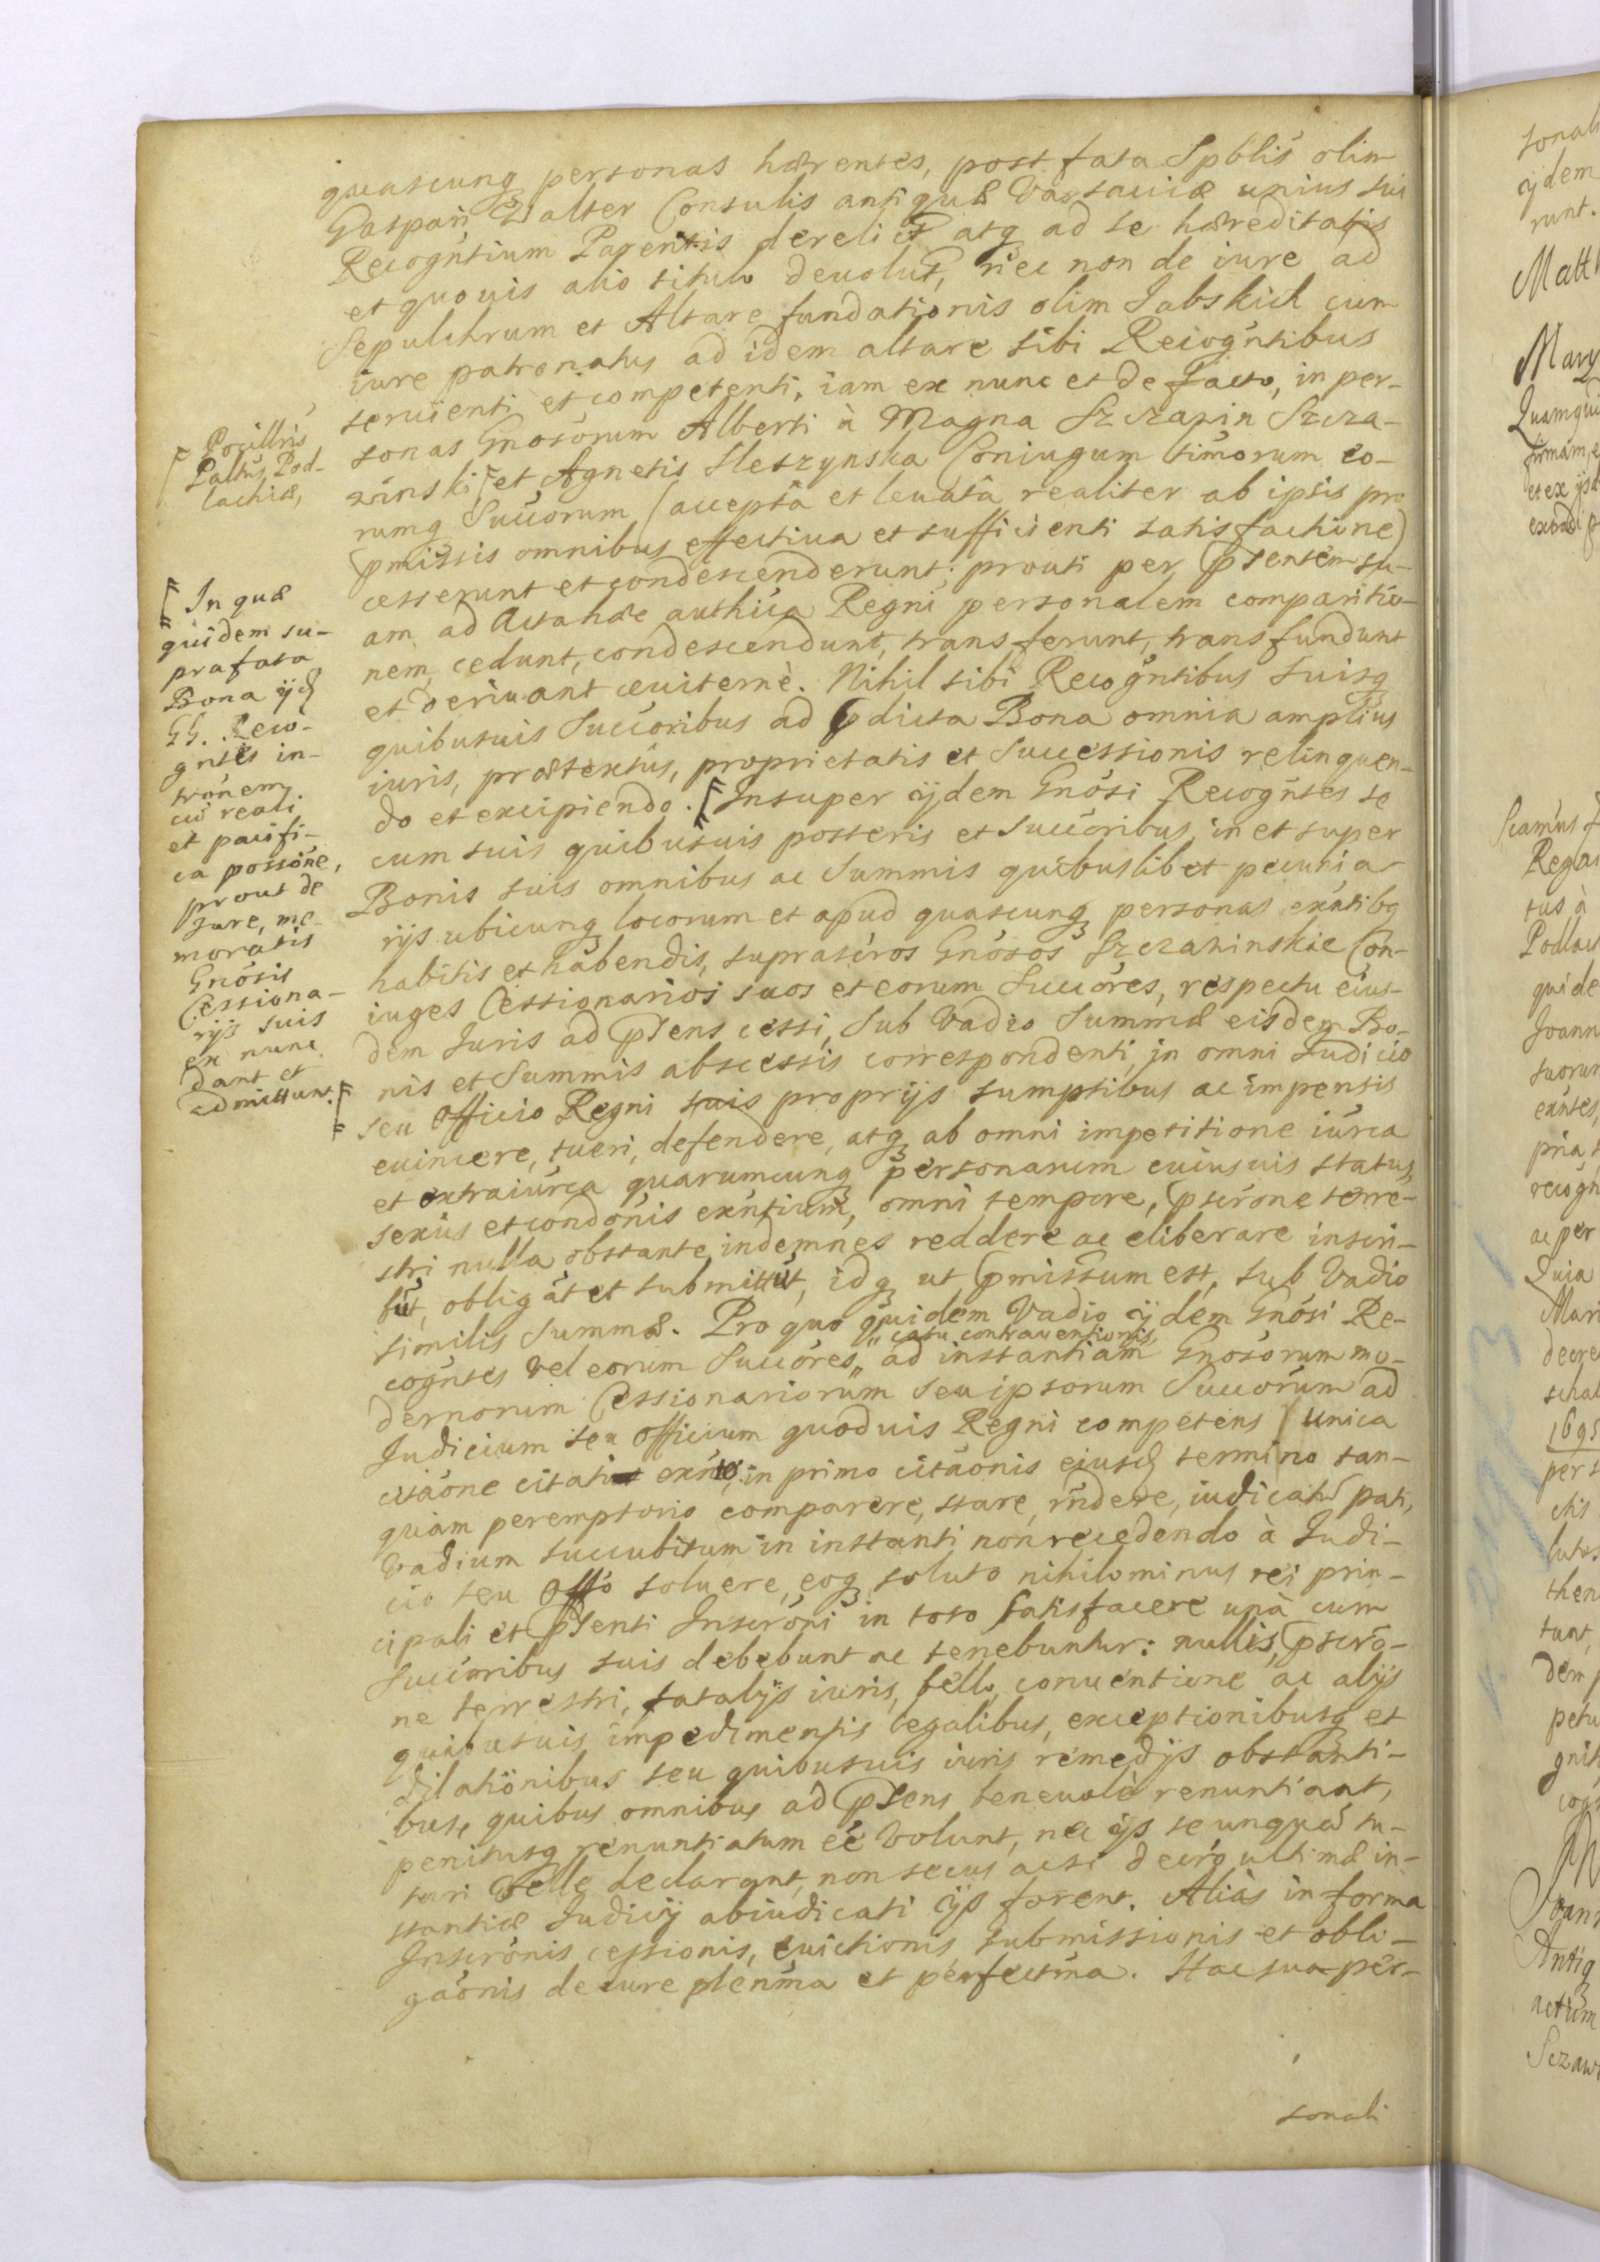 quascunq personas hærentes, post fata Spblis olim
Gaspari Walter Consulis antiquæ Varsauiæ unius sui
Recogntium Parentis derelict atq ad se hæreditatis
et quouis alio titulo deuolut, nec non de iure ad
Sepulchrum et Altare fundationis olim Jabskich cum
iure patronatus ad idem altare sibi Recogntibus
seruienti et competenti, iam ex nunc et de facto, in per-
sonas Gnosorum Alberti à Magna Szczazin Szcza-
zinski et Agnetis Sleszynska Coniugum timorum eo-
rumq Succorum (accepta et leuata realiter ab ipsis pro
pmissis omnibus effectiua et sufficienti satisfactione)
cesserunt et condescenderunt; prout per psentem su-
am, ad Acta hæc authica Regni personalem comparitio-
nem, cedunt, condescendunt, transferunt, transfundunt
et deriuant æuiternè. Nihil sibi Recogntibus suisq
quibusuis Succoribus ad pdicta Bona omnia amplius
iuris, prætextus, proprietatis et successionis relinquen-
do et excipiendo. Insuper ijdem Gnosi Recogntes se
cum suis quibusuis posteris et succoribus, in et super
Bonis suis omnibus ac Summis quibuslibet pecunia-
rijs ubicunq locorum et apud quascunq personas exntibq
habitis et habendis, suprascros Gnosos Szczazinskie Con-
iuges Cessionarios suos et eorum Succores, respectu eius-
dem Juris ad psens cessi, sub Vadio Summæ eisdem Bo-
nis et Summis abscessis correspondenti, in omni Judicio
seu Officio Regni suis proprijs sumptibus ac impensis
euincere, tueri, defendere, atq ab omni impetitione iurca
et extraiurca quarumcunq personarum cuiusuis status,
sexus et condonis exntium, omni tempore, pscrone terre-
stri nulla obstante, indemnes reddere ac eliberare inscri-
but, obligat et submittut, idq ut pmissum est, sub Vadio
similis Summæ. Pro quo quidem Vadio ijdem Gnosi Re-
cogntes vel eorum Succores, casu contrauentionis, ad instantiam Gnosorum mo-
dernorum Cessionariorum seu ipsorum Succorum ad
Judicium seu Officium quoduis Regni competens unica
citaone citati exntes, in primo citaonis eiusd termino tan-
quam peremptorio comparere, stare, rndere, iudicatu pati,
Vadium succubitum in instanti non recedendo à Judi-
cio seu Offo soluere, eoq soluto nihilominus rei prin-
cipali et psenti Inscroni in toto satisfacere unà cum
Succoribus suis debebunt ac tenebuntur: nullis, pscro-
ne terrestri, fatalijs iuris, bello, conuentione ac alijs
quibusuis impedimentis legalibus, exceptionibusq et
dilationibus seu quibusuis iuris remedijs obstanti-
bus, quibus omnibus ad psens beneuolè renuntiant,
penitusq renuntiatum ee Volunt, nec ijs se unqua tu-
turi Velle declarant, non secus ac si decro ultimæ in-
stantiæ Judicij abiudicati ijs forent. Aliàs in forma
Inscronis, cessionis, euictionis submissionis et obli-
gaonis de iure plenma et perfectma. Hac sua per-
sonali
Pocillris
Paltus Pod-
lachiæ,
In quæ
quidem su-
prafata
Bona ijd
GG. Reco-
gntes in-
tronem
cu reali
et pacifi-
ca possone,
prout de
Jure, me-
moratis
Gnosis
Cessiona-
rijs suis
ex nunc
dant et
admittunt.